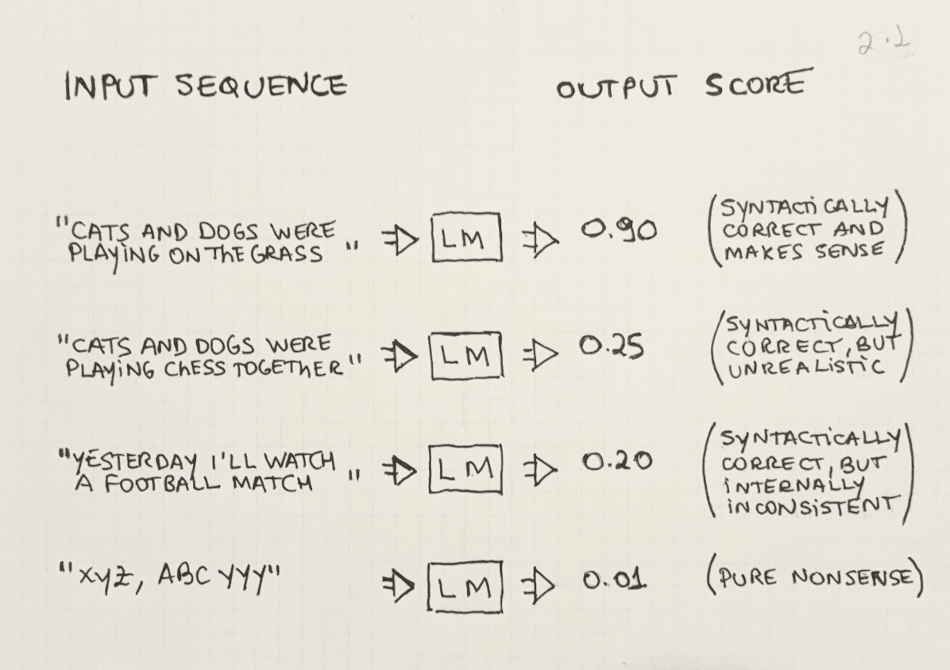 2.1
INPUT SEQUENCE OUTPUT SCORE
"CATS AND DOGS WERE
PLAYING ON THE GRASS"
LM
0.90
(SYNTACTICALLY
CORRECT AND
MAKES SENSE)
"CATS AND DOGS WERE
PLAYING CHESS TOGETHER"
LM
0.25
(SYNTACTICALLY
CORRECT, BUT
UNREALISTIC)
"YESTERDAY I'LL WATCH
A FOOTBALL MATCH"
LM
0.20
(SYNTACTICALLY
CORRECT, BUT
INTERNALLY
INCONSISTENT)
"XYZ, ABC YYY"
LM
0.01
(PURE NONSENSE)